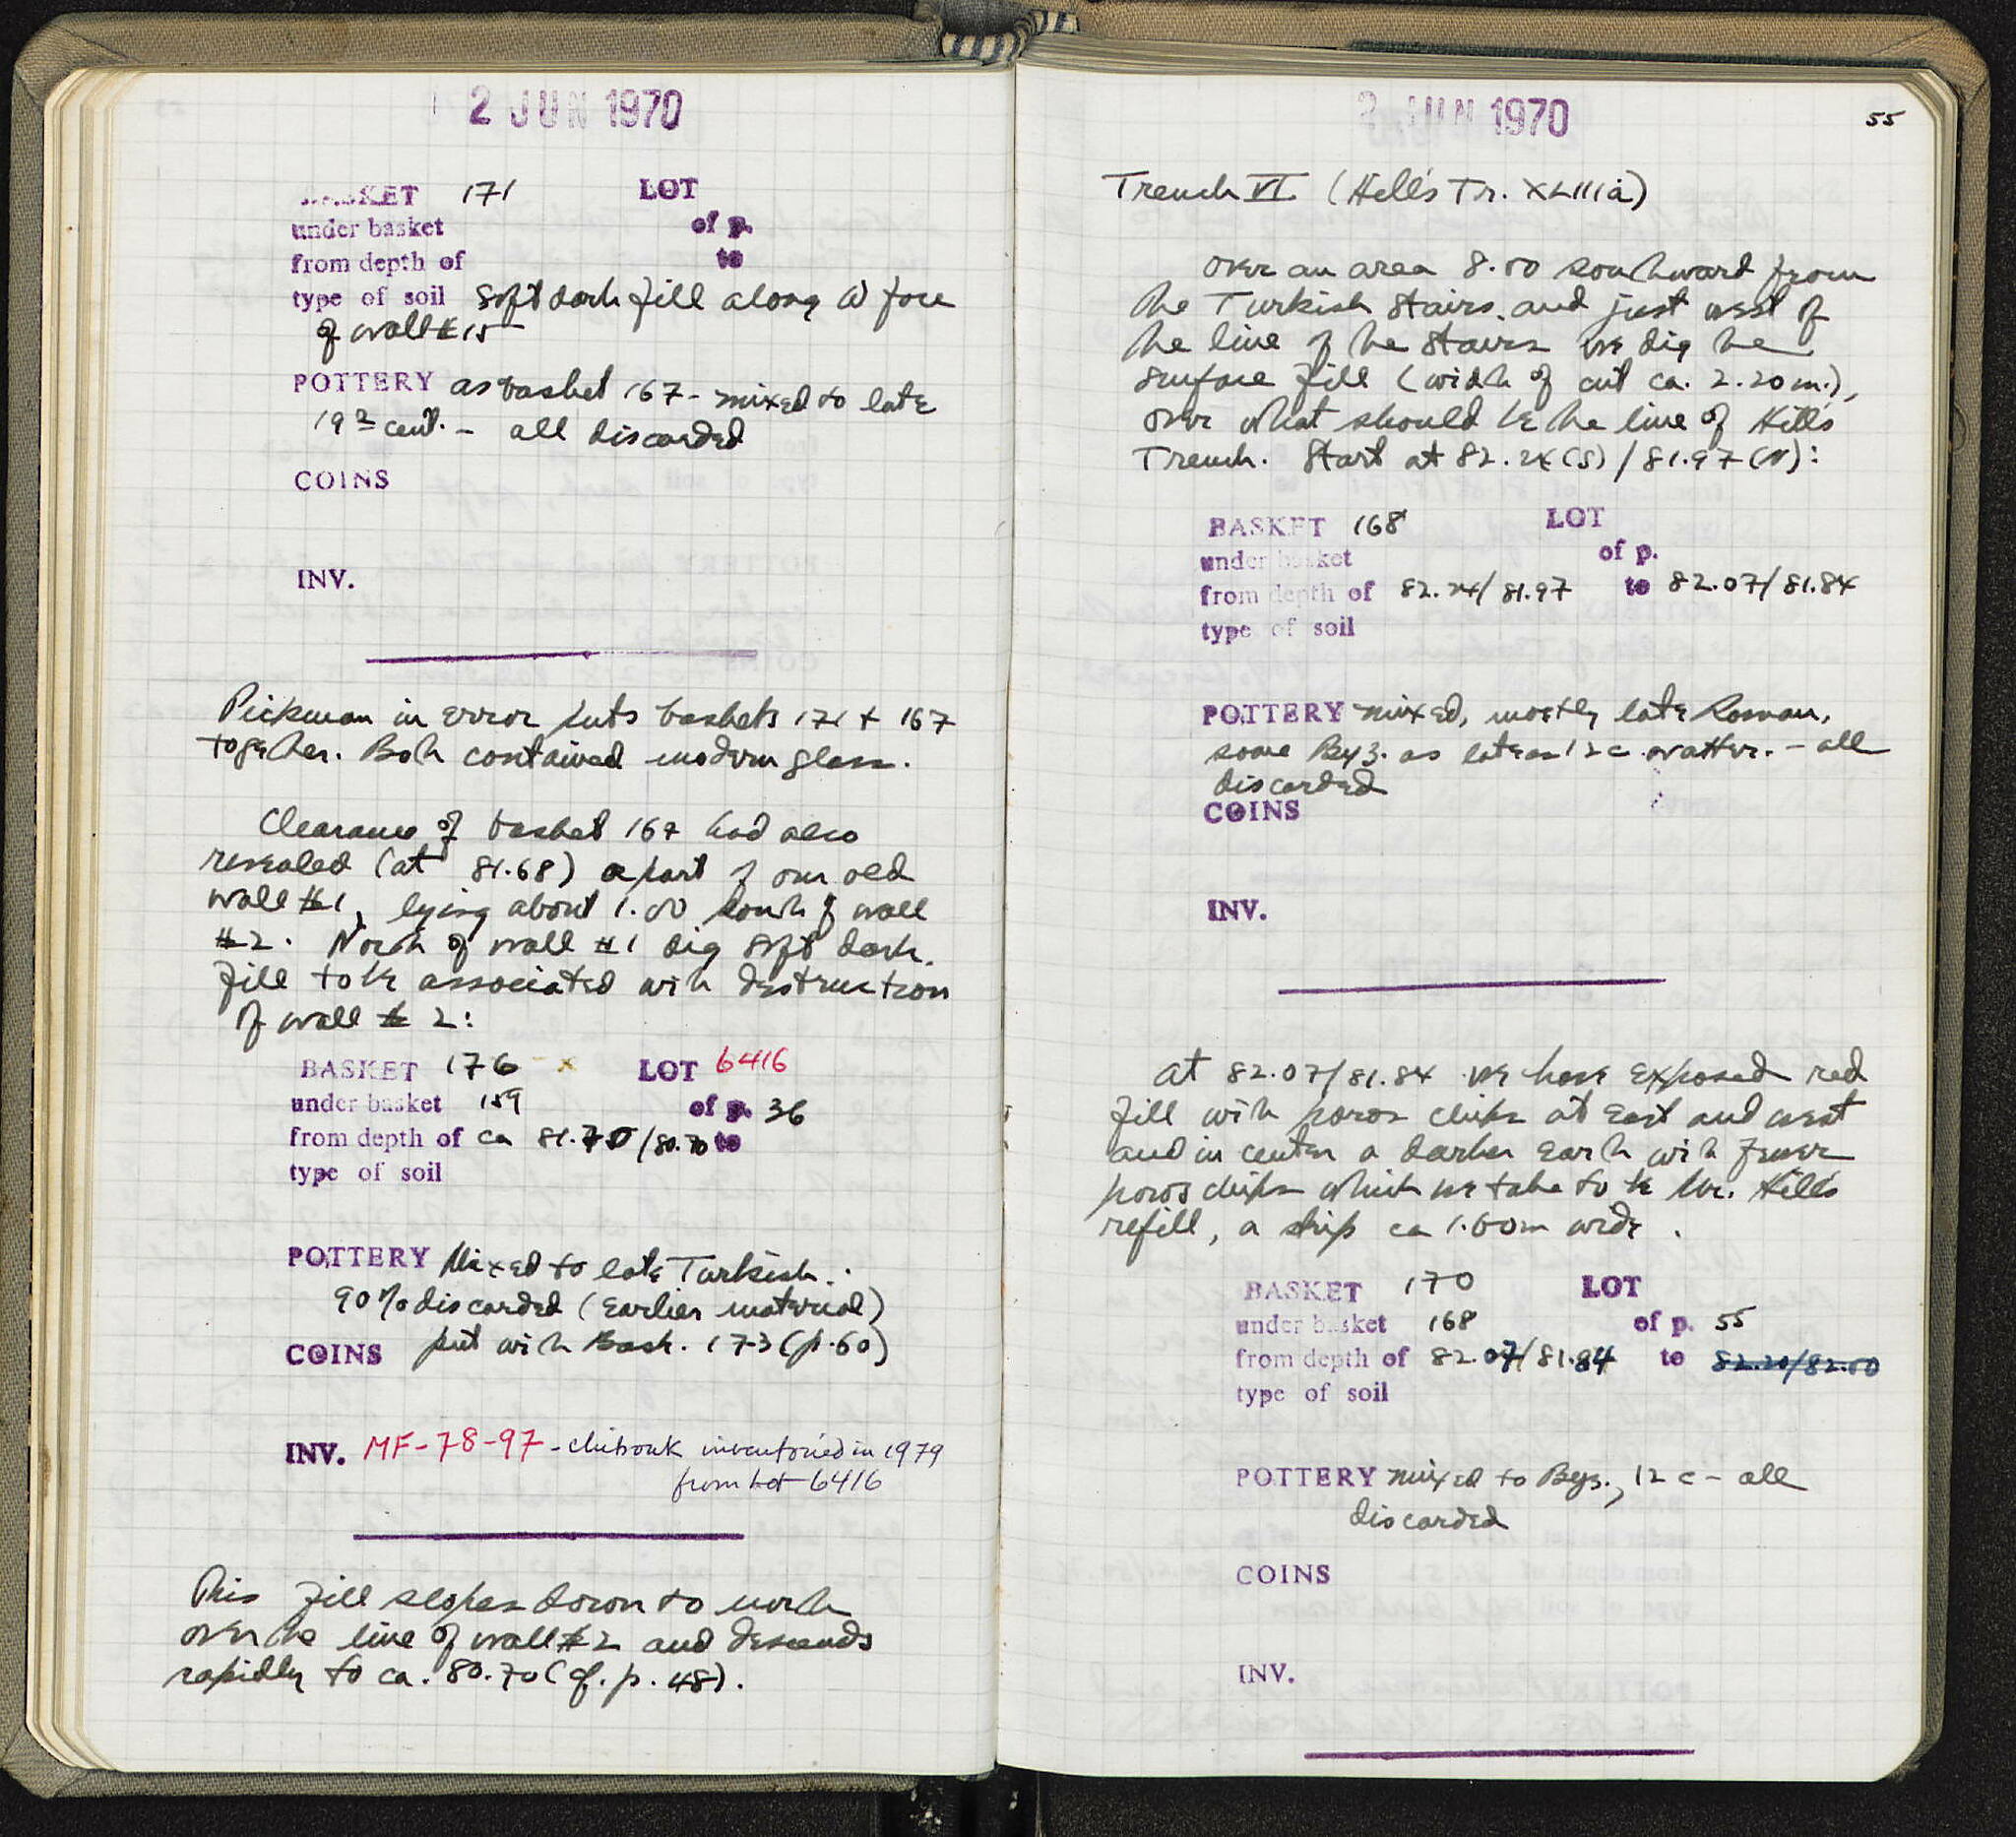 2 JUN 1970
BASKET 171 LOT
under basket of p.
from depth of to
type of soil soft dark fill along W face
of wall #15
POTTERY as basket 167 - mixed to late
19th cent. - all discarded
COINS
INV.
Pickman in error puts baskets 171 + 167
together. Both contained modern glass.
Clearance of basket 167 had also
revealed (at 81.68) a part of our old
wall #1, lying about 1.00 south of wall
#2. North of wall #1 dig soft dark
fill to be associated with destruction
of wall # 2:
BASKET 176 x LOT 6416
under basket 159 of p. 36
from depth of ca 81.70/80.70 to
type of soil
POTTERY Mixed to late Turkish.
90% discarded (earlier material)
COINS put with Bask. 173 (p.60)
INV. MF-78-97 - chibouk inventoried in 1979
from lot 6416
This fill slopes down to north
over the line of wall #2 and descends
rapidly to ca. 80.70 (cf. p. 48).
2 JUN 1970
55
Trench VI (Hill's Tr. XLIIIa)
over an area 8.00 southward from
the Turkish stairs and just west of
the line of the stairs we dig the
surface fill (width of cut ca. 2.20m.),
over what should be the line of Hill's
Trench. Start at 82.24(S)/81.97(N):
BASKET 168 LOT
under basket of p.
from depth of 82.24/81.97 to 82.07/81.84
type of soil
POTTERY mixed, mostly late Roman,
some Byz. as late as 12 c. - all
discarded
COINS
INV.
At 82.07/81.84 we have exposed red
fill with poros chips at east and west
and in center a darker earth with fewer
poros chips which we take to be Mr. Hill's
refill, a strip ca 1.60m wide.
BASKET 170 LOT
under basket 168 of p. 55
from depth of 82.07/81.84 to 82.20/82.00
type of soil
POTTERY mixed to Byz., 12 c - all
discarded
COINS
INV.